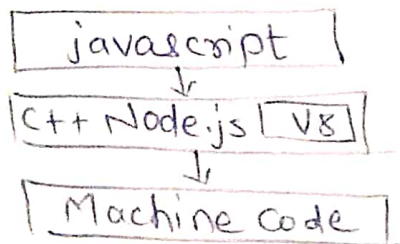 javascript
C++ Node.js V8
Machine code